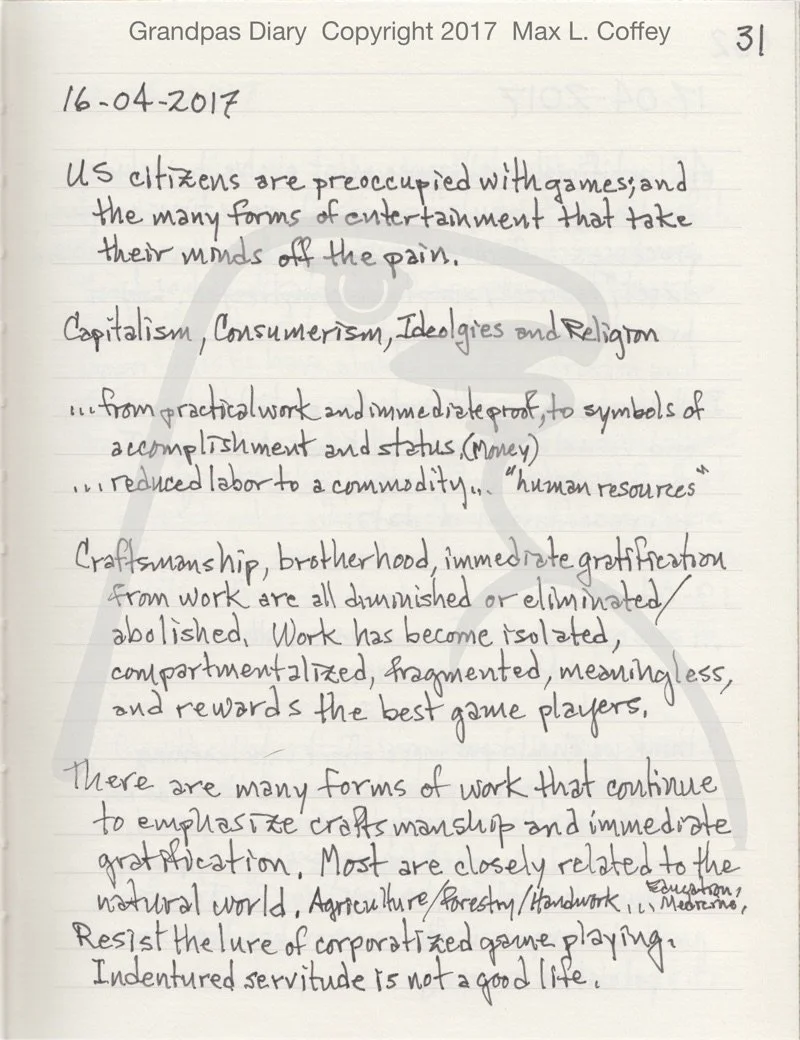 Grandpas Diary Copyright 2017 Max L. Coffey
31
16-04-2017
US citizens are preoccupied with games; and
the many forms of entertainment that take
their minds off the pain.
Capitalism, Consumerism, Ideolgies and Religion
...from practical work and immediate proof, to symbols of
accomplishment and status, (Money)
... reduced labor to a commodity... "human resources"
Craftsmanship, brotherhood, immediate gratification
from work are all diminished or eliminated/
abolished. Work has become isolated,
compartmentalized, fragmented, meaningless,
and rewards the best game players.
There are many forms of work that continue
to emphasize craftsmanship and immediate
gratification. Most are closely related to the
natural world. Agriculture/Forestry/Handwork ... Education,
Medicine,
Resist the lure of corporatized game playing.
Indentured servitude is not a good life.